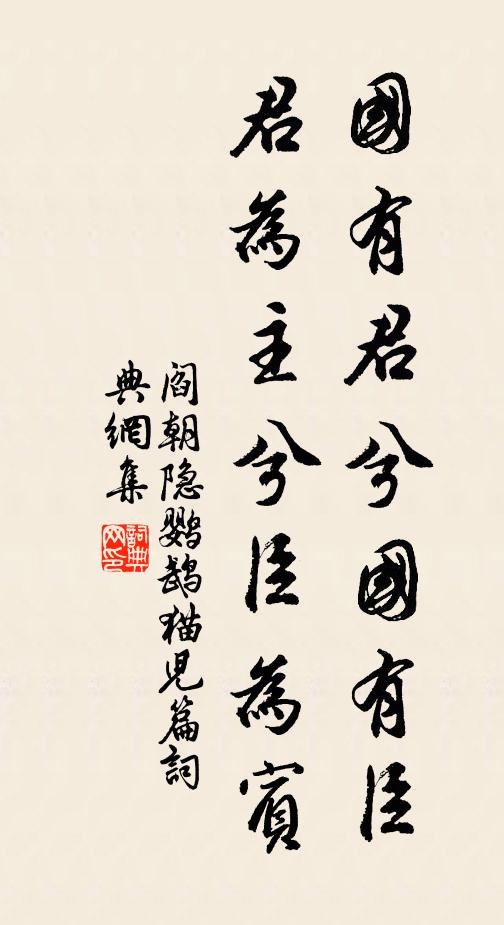 國有君兮國有臣
君為主兮臣為賓
閻朝隐鹦鹉猫児篇詞
典網集
詞典網印